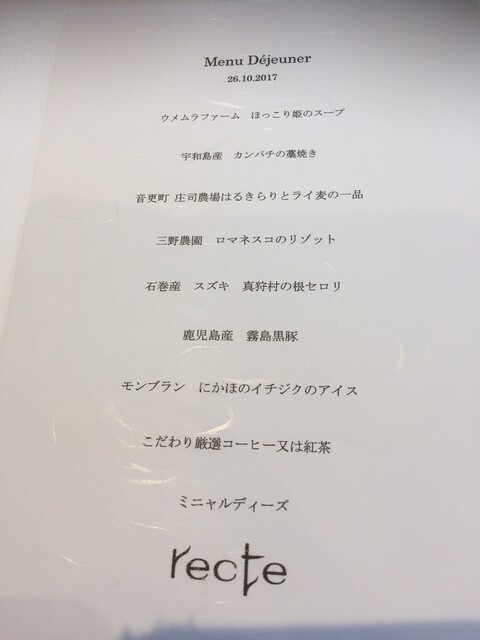 Menu Déjeuner
26.10.2017
ウメムラファーム　ほっこり姫のスープ
宇和島産　カンパチの藁焼き
音更町 庄司農場はるきらりとライ麦の一品
三野農園　ロマネスコのリゾット
石巻産　スズキ　真狩村の根セロリ
鹿児島産　霧島黒豚
モンブラン　にかほのイチジクのアイス
こだわり厳選コーヒー又は紅茶
ミニャルディーズ
recte